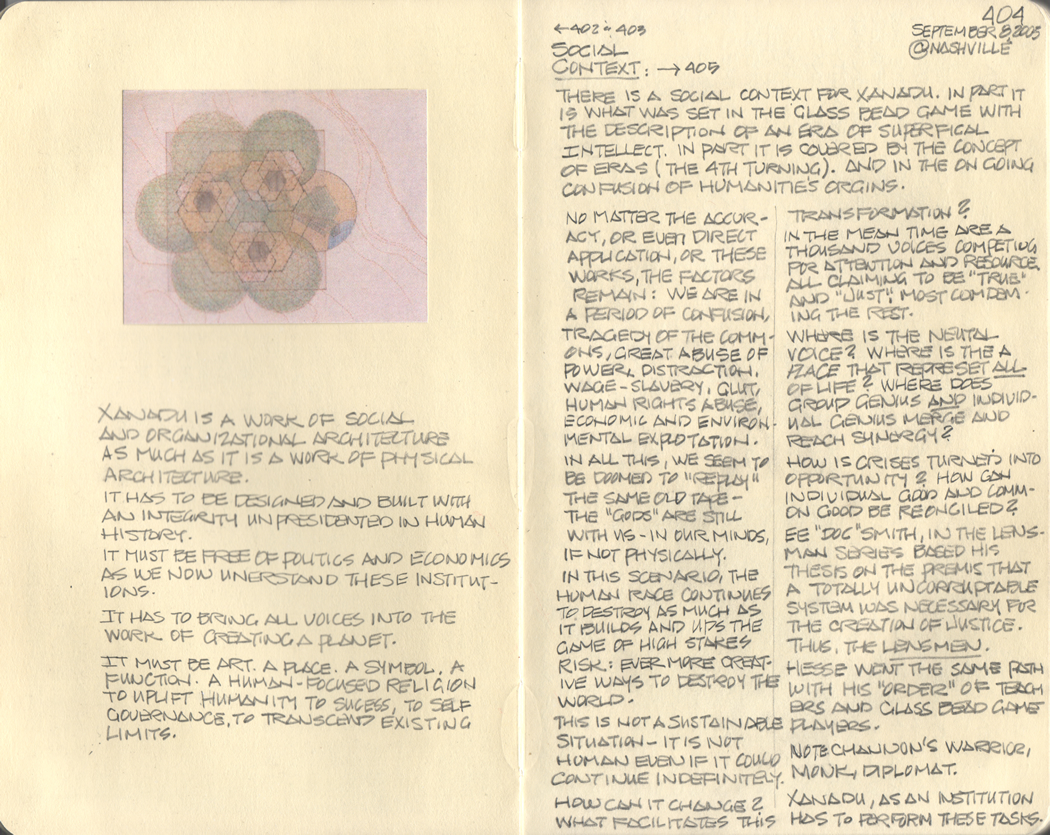 XANADU IS A WORK OF SOCIAL
AND ORGANIZATIONAL ARCHITECTURE
AS MUCH AS IT IS A WORK OF PHYSICAL
ARCHITECTURE.
IT HAS TO BE DESIGNED AND BUILT WITH
AN INTEGRITY UNPRESIDENTED IN HUMAN
HISTORY.
IT MUST BE FREE OF POLITICS AND ECONOMICS
AS WE NOW UNERSTAND THESE INSTITUT-
IONS.
IT HAS TO BRING ALL VOICES INTO THE
WORK OF CREATING A PLANET.
IT MUST BE ART. A PLACE. A SYMBOL. A
FUNCTION. A HUMAN-FOCUSED RELIGION
TO UPLIFT HUMANITY TO SUCESS, TO SELF
GOVERNANCE, TO TRANSCEND EXISTING
LIMITS.
404
←402 & 403
SEPTEMBER 8, 2005
@NASHVILLE
SOCIAL
CONTEXT: →405
THERE IS A SOCIAL CONTEXT FOR XANADU. IN PART IT
IS WHAT WAS SET IN THE GLASS BEAD GAME WITH
THE DESCRIPTION OF AN ERA OF SUPERFICAL
INTELLECT. IN PART IT IS COVERED BY THE CONCEPT
OF ERAS (THE 4TH TURNING). AND IN THE ON GOING
CONFUSION OF HUMANITIE'S ORGINS.
NO MATTER THE ACCUR-
ACY, OR EVEN DIRECT
APPLICATION, OR THESE
WORKS, THE FACTORS
REMAIN: WE ARE IN
A PERIOD OF CONFUSION,
TRAGEDY OF THE COMM-
ONS, GREAT ABUSE OF
POWER, DISTRACTION,
WAGE-SLAVERY, GLUT,
HUMAN RIGHTS ABUSE,
ECONOMIC AND ENVIRON-
MENTAL EXPLOTATION.
IN ALL THIS, WE SEEM TO
BE DOOMED TO "REPLAY"
THE SAME OLD TAPE-
THE "GODS" ARE STILL
WITH US - IN OUR MINDS,
IF NOT PHYSICALLY.
IN THIS SCENARIO, THE
HUMAN RACE CONTINUES
TO DESTROY AS MUCH AS
IT BUILDS AND UPS THE
GAME OF HIGH STAKES
RISK: EVER MORE CREAT-
IVE WAYS TO DESTROY THE
WORLD.
THIS IS NOT A SUSTAINABLE
SITUATION - IT IS NOT
HUMAN EVEN IF IT COULD
CONTINUE INDEFINITELY.
HOW CAN IT CHANGE?
WHAT FACILITATES THIS
TRANSFORMATION?
IN THE MEAN TIME ARE A
THOUSAND VOICES COMPETING
FOR ATTENTION AND RESOURCE
ALL CLAIMING TO BE "TRUE"
AND "JUST", MOST COMDEM-
ING THE REST.
WHERE IS THE NEUTAL
VOICE? WHERE IS THE A
PLACE THAT REPRESET ALL
OF LIFE? WHERE DOES
GROUP GENIUS AND INDIVID-
UAL GENIUS MERGE AND
REACH SYNERGY?
HOW IS CRISES TURNED INTO
OPPORTUNITY? HOW CAN
INDIVIDUAL GOOD AND COMM-
ON GOOD BE RECONCILED?
EE "DOC" SMITH, IN THE LENS-
MAN SERIES BASED HIS
THESIS ON THE PREMIS THAT
A TOTALLY UNCORRUPTABLE
SYSTEM WAS NECESSARY FOR
THE CREATION OF JUSTICE.
THUS, THE LENSMEN.
HESSE WENT THE SAME PATH
WITH HIS "ORDER" OF TEACH
ERS AND GLASS BEAD GAME
PLAYERS.
NOTE CHANNON'S WARRIOR,
MONK, DIPLOMAT.
XANADU, AS AN INSTITUTION
HAS TO PERFORM THESE TASKS.